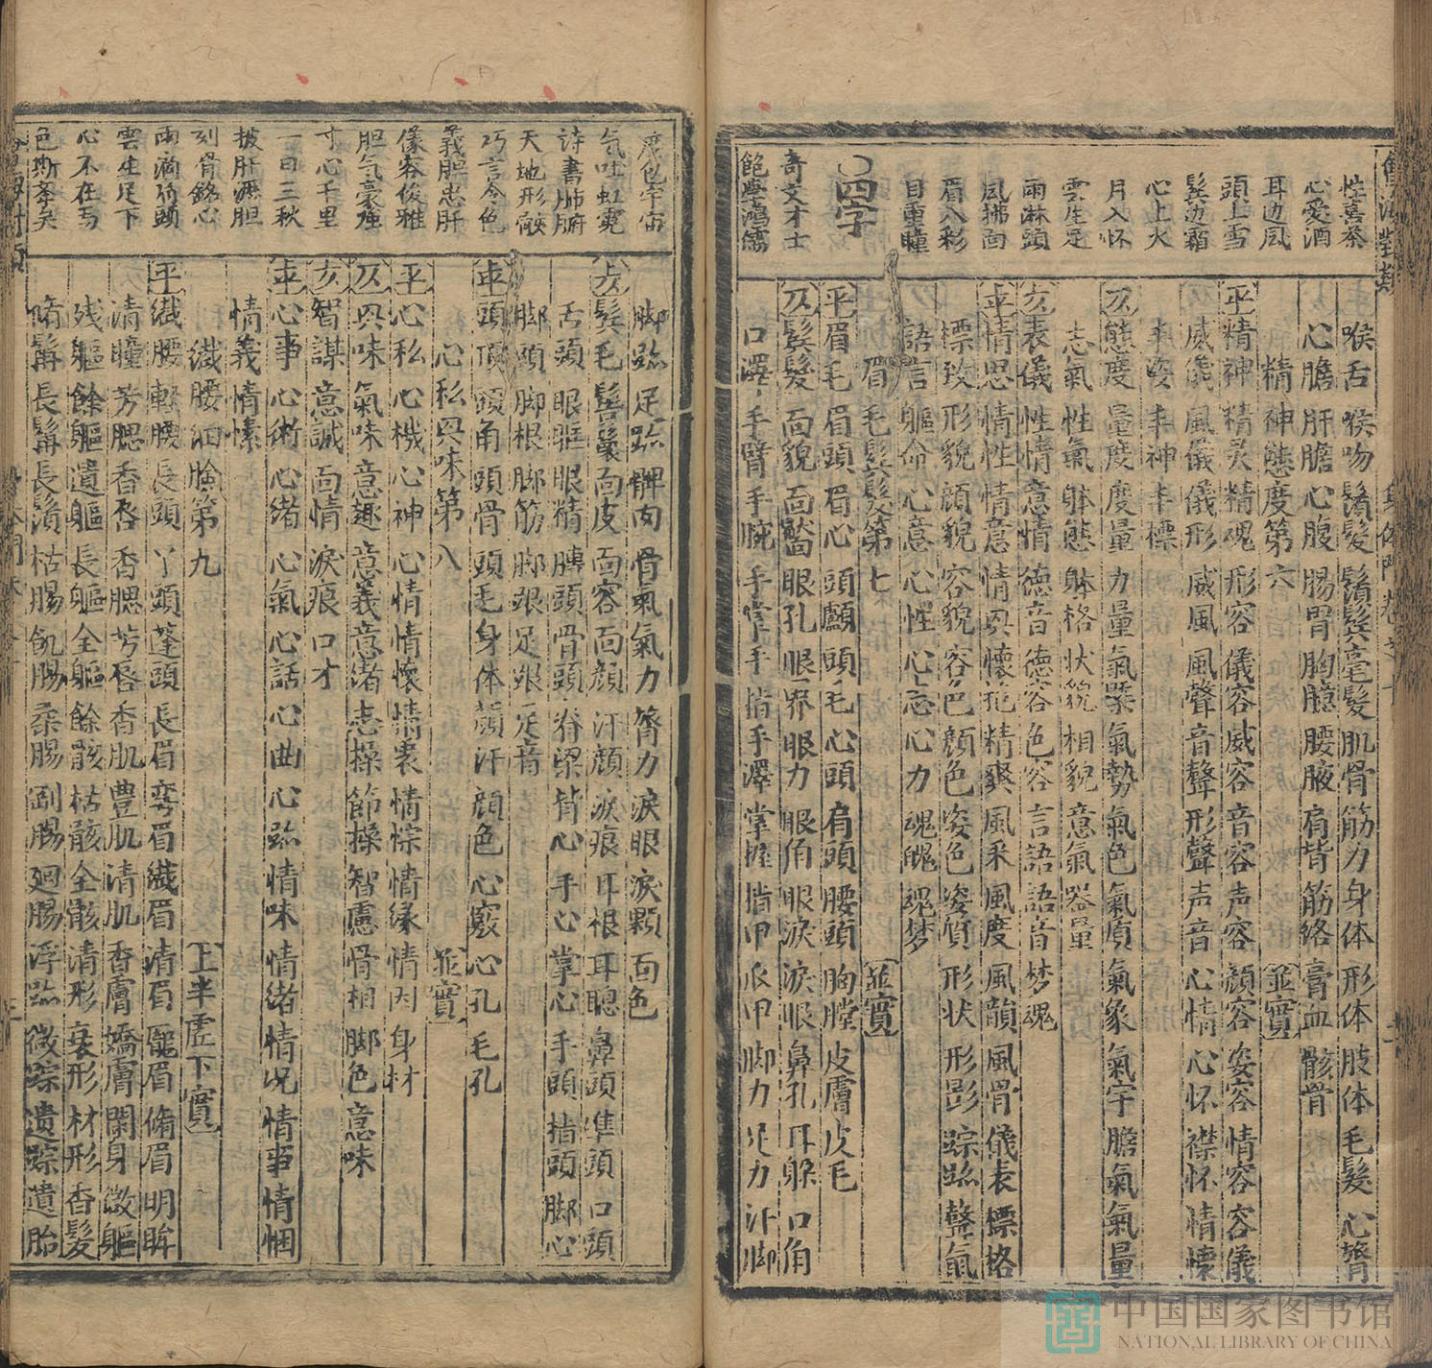 性喜茶
心愛酒
耳边风
頭上雪
鬂边霜
心上火
月入怀
雲生足
雨淋頭
風拂面
眉八彩
目重瞳
○四字
奇文才士
飽學鴻儒
喉舌 喉吻 鬚髮 鬚鬂 毫髮 肌骨 筋力 身体 形体 肢体 毛髮 心膂
心膽 肝膽 心腹 腸胃 胸臆 腰腋 肩背 筋絡 膏血 骸骨
精神態度第六 並實
平 精神 精灵 精魂 形容 儀容 威容 音容 声容 顔容 姿容 情容 容儀
威儀 風儀 儀形 威風 風聲 音聲 形聲 声音 心情 心怀 襟怀 情懐
丰姿 丰神 丰標
仄 態度 量度 度量 力量 氣槩 氣勢 氣色 氣質 氣象 氣宇 膽氣 氣量
志氣 性氣 躰態 躰格 状貌 相貌 意氣 器量
表儀 性情 意情 德音 德容 色容 言語 語音 梦魂
平 情思 情性 情意 情興 懷抱 精爽 風采 風度 風韻 風骨 儀表 標格
標致 形貌 顔貌 容貌 容色 顔色 姿色 姿質 形状 形影 踪跡 聲氣
語言 軀命 心意 心性 心志 心力 魂魄 魂梦
眉毛鬂髮第七 並實
平 眉毛 眉頭 眉心 頭顱 頭毛 心頭 肩頭 腰頭 胸膛 皮膚 皮毛
仄 鬂髮 面貌 面龐 眼孔 眼界 眼力 眼角 眼淚 淚眼 鼻孔 耳躲 口角
口澤 手臂 手腕 手掌 手指 手澤 掌握 指甲 爪甲 脚力 足力 汗脚
度包宇宙
气吐虹霓
詩書肺腑
天地形骸
巧言令色
義胆忠肝
儀容俊雅
胆气豪強
寸心千里
一日三秋
披肝瀝胆
刻骨銘心
雨滴階頭
雲生足下
心不在焉
色斯舉矣
脚跡 足跡 髀肉 骨氣 氣力 膂力 淚眼 淚顆 面色
髮毛 鬢鬟 面皮 面容 面顔 汗顔 淚痕 耳根 耳聰 鼻頭 準頭 口頭
舌頭 眼眶 眼精 膊頭 骨頭 脊梁 背心 手心 掌心 手頭 指頭 脚心
脚頭 脚根 脚筋 脚跟 足跟 足音
頭頂 頭角 頭骨 頭毛 身体 顔汗 顔色 心竅 心孔 毛孔
心私興味第八 並實
平 心私 心機 心神 心情 情懷 情衷 情悰 情緣 情肉 身材
仄 興味 氣味 意趣 意義 意緒 志操 節操 智慮 骨相 脚色 意味
智謀 意誠 面情 淚痕 口才
心事 心術 心緒 心氣 心話 心曲 心跡 情味 情緒 情况 情事 情悃
情義 情愫
纖腰細臉第九 上半虚下實
平 纖腰 輭腰 長頭 丫頭 蓬頭 長眉 彎眉 纖眉 清眉 龐眉 脩眉 明眸
清瞳 芳腮 香唇 香腮 芳唇 香肌 豊肌 清肌 香膚 嬌膚 閑身 微軀
残軀 餘軀 遺軀 長軀 全軀 餘骸 枯骸 全骸 清形 衰形 材形 香髮
脩髯 長髯 長鬚 枯腸 飢腸 柔腸 剛腸 廻腸 浮跡 微踪 遺踪 遺胎
中国国家图书馆
NATIONAL LIBRARY OF CHINA